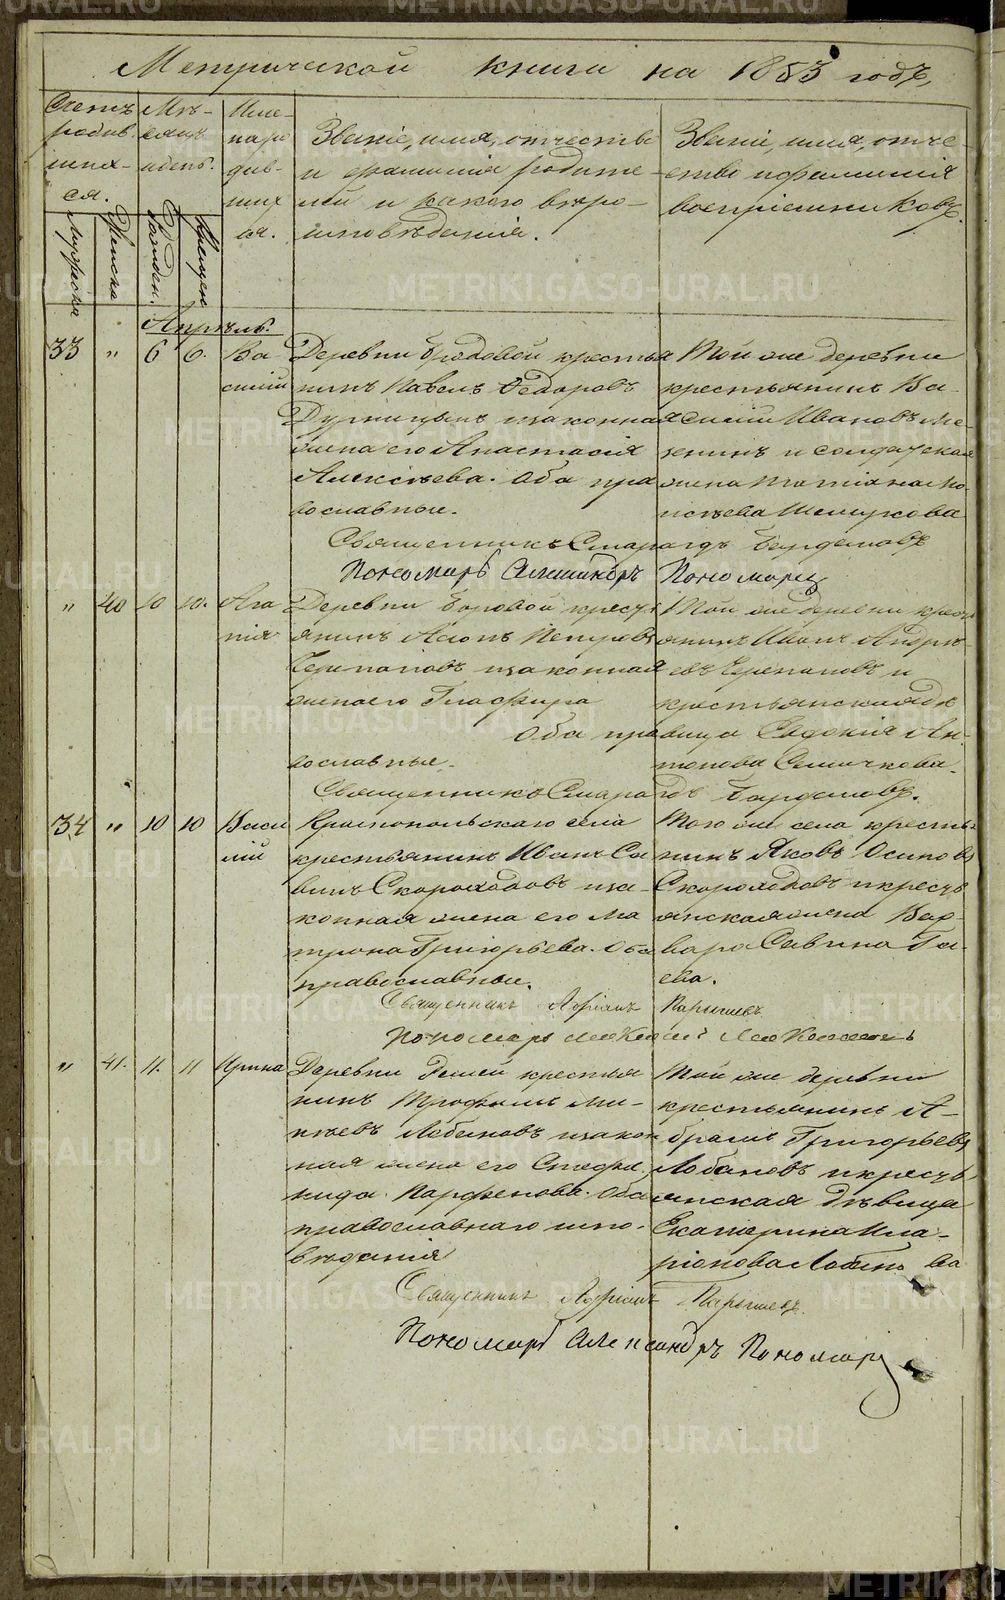 Метрической книги на 1883 годъ,
Счетъ родив шихся.
Мѣсяцъ и день.
Имена родившихся.
Званіе, имя, отчество и фамилія родителей и какого вѣроисповѣданія.
Званіе, имя, отчество и фамилія воспріемниковъ.
Мужеска
Женска
Рожден.
Крещен
Апрѣль.
33 " 6 6. Василій
Деревни крестья
нинъ Павелъ Ѳедоровъ
и законная
жена его Анастасія
Алексѣева. Оба пра
вославные.
Той же деревни
крестьянинъ Ва-
силій Ивановъ Ме-
зенинъ и солдатская
жена
Священникъ Смарагдъ
Пономарь Александръ Пономарев
" 40 10 10. Ага
пія
Деревни Боровой крестья
янинъ Петровъ
Черепановъ и законная
жена его Глафира
Оба пра
вославные.
Той же деревни крест
янинъ Иванъ Андре-
евъ Черепановъ и
крестьянская дѣ
вица Евдокія Ан-
тонова Семичкова.
Священникъ Смарагдъ
34 " 10 10 Васи
лій
Краснопольскаго села
крестьянинъ Иванъ Са
винъ Скороходовъ и за
конная жена его Ма
трона Григорьева. Оба
православные.
Того же села кресть
нинъ Яковъ Осиповъ
Скороходовъ и крестья
янская жена Вар-
вара Савина Га
ева.
Священникъ Парышевъ
Пономарь
" 41. 11. 11 Ирина
Деревни крестья
нинъ Трофимъ Ми-
нѣевъ Лобановъ и закон
ная жена его Стефа
нида Парфенова. Оба
православнаго испо-
вѣданія
Той же деревни
крестьянинъ А-
брамъ Григорьевъ
Лобановъ и кресть
янская дѣвица
Екатерина Ила-
ріонова Лобано ва
Священникъ Парышевъ
Пономарь Александръ Пономарев
METRIKI.GASO-URAL.RU